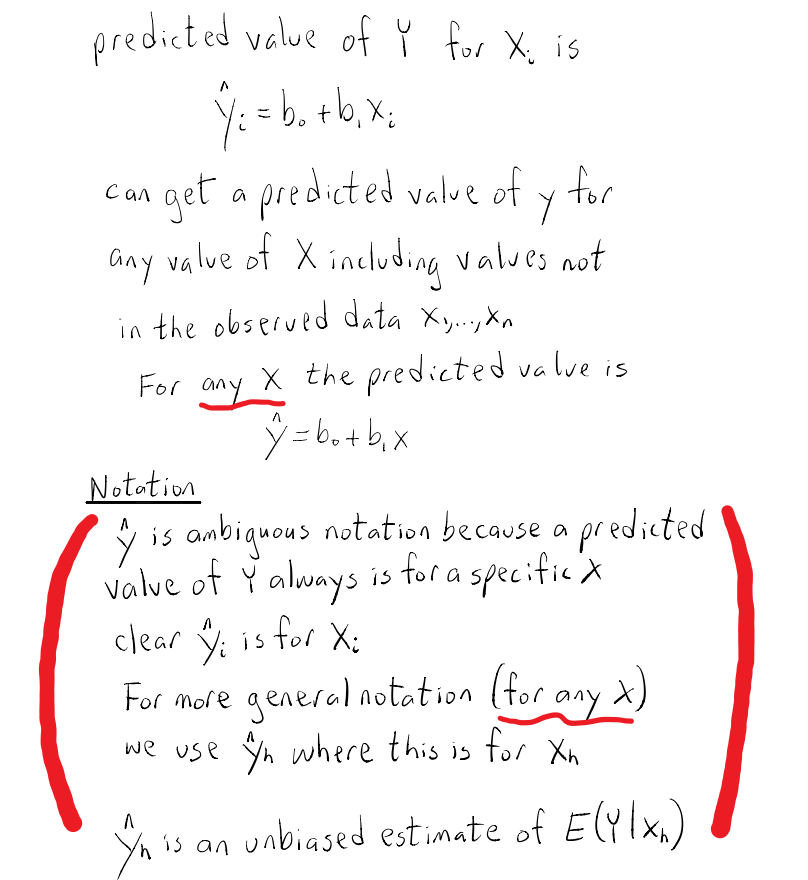 predicted value of Y for Xᵢ is
ŷᵢ = b₀ + b₁xᵢ
can get a predicted value of y for
any value of X including values not
in the observed data x₁,...,xₙ
For any X the predicted value is
ŷ = b₀ + b₁x
Notation
ŷ is ambiguous notation because a predicted
value of Y always is for a specific X
clear ŷᵢ is for Xᵢ
For more general notation (for any X)
we use ŷₕ where this is for Xₕ
ŷₕ is an unbiased estimate of E(Y|xₕ)